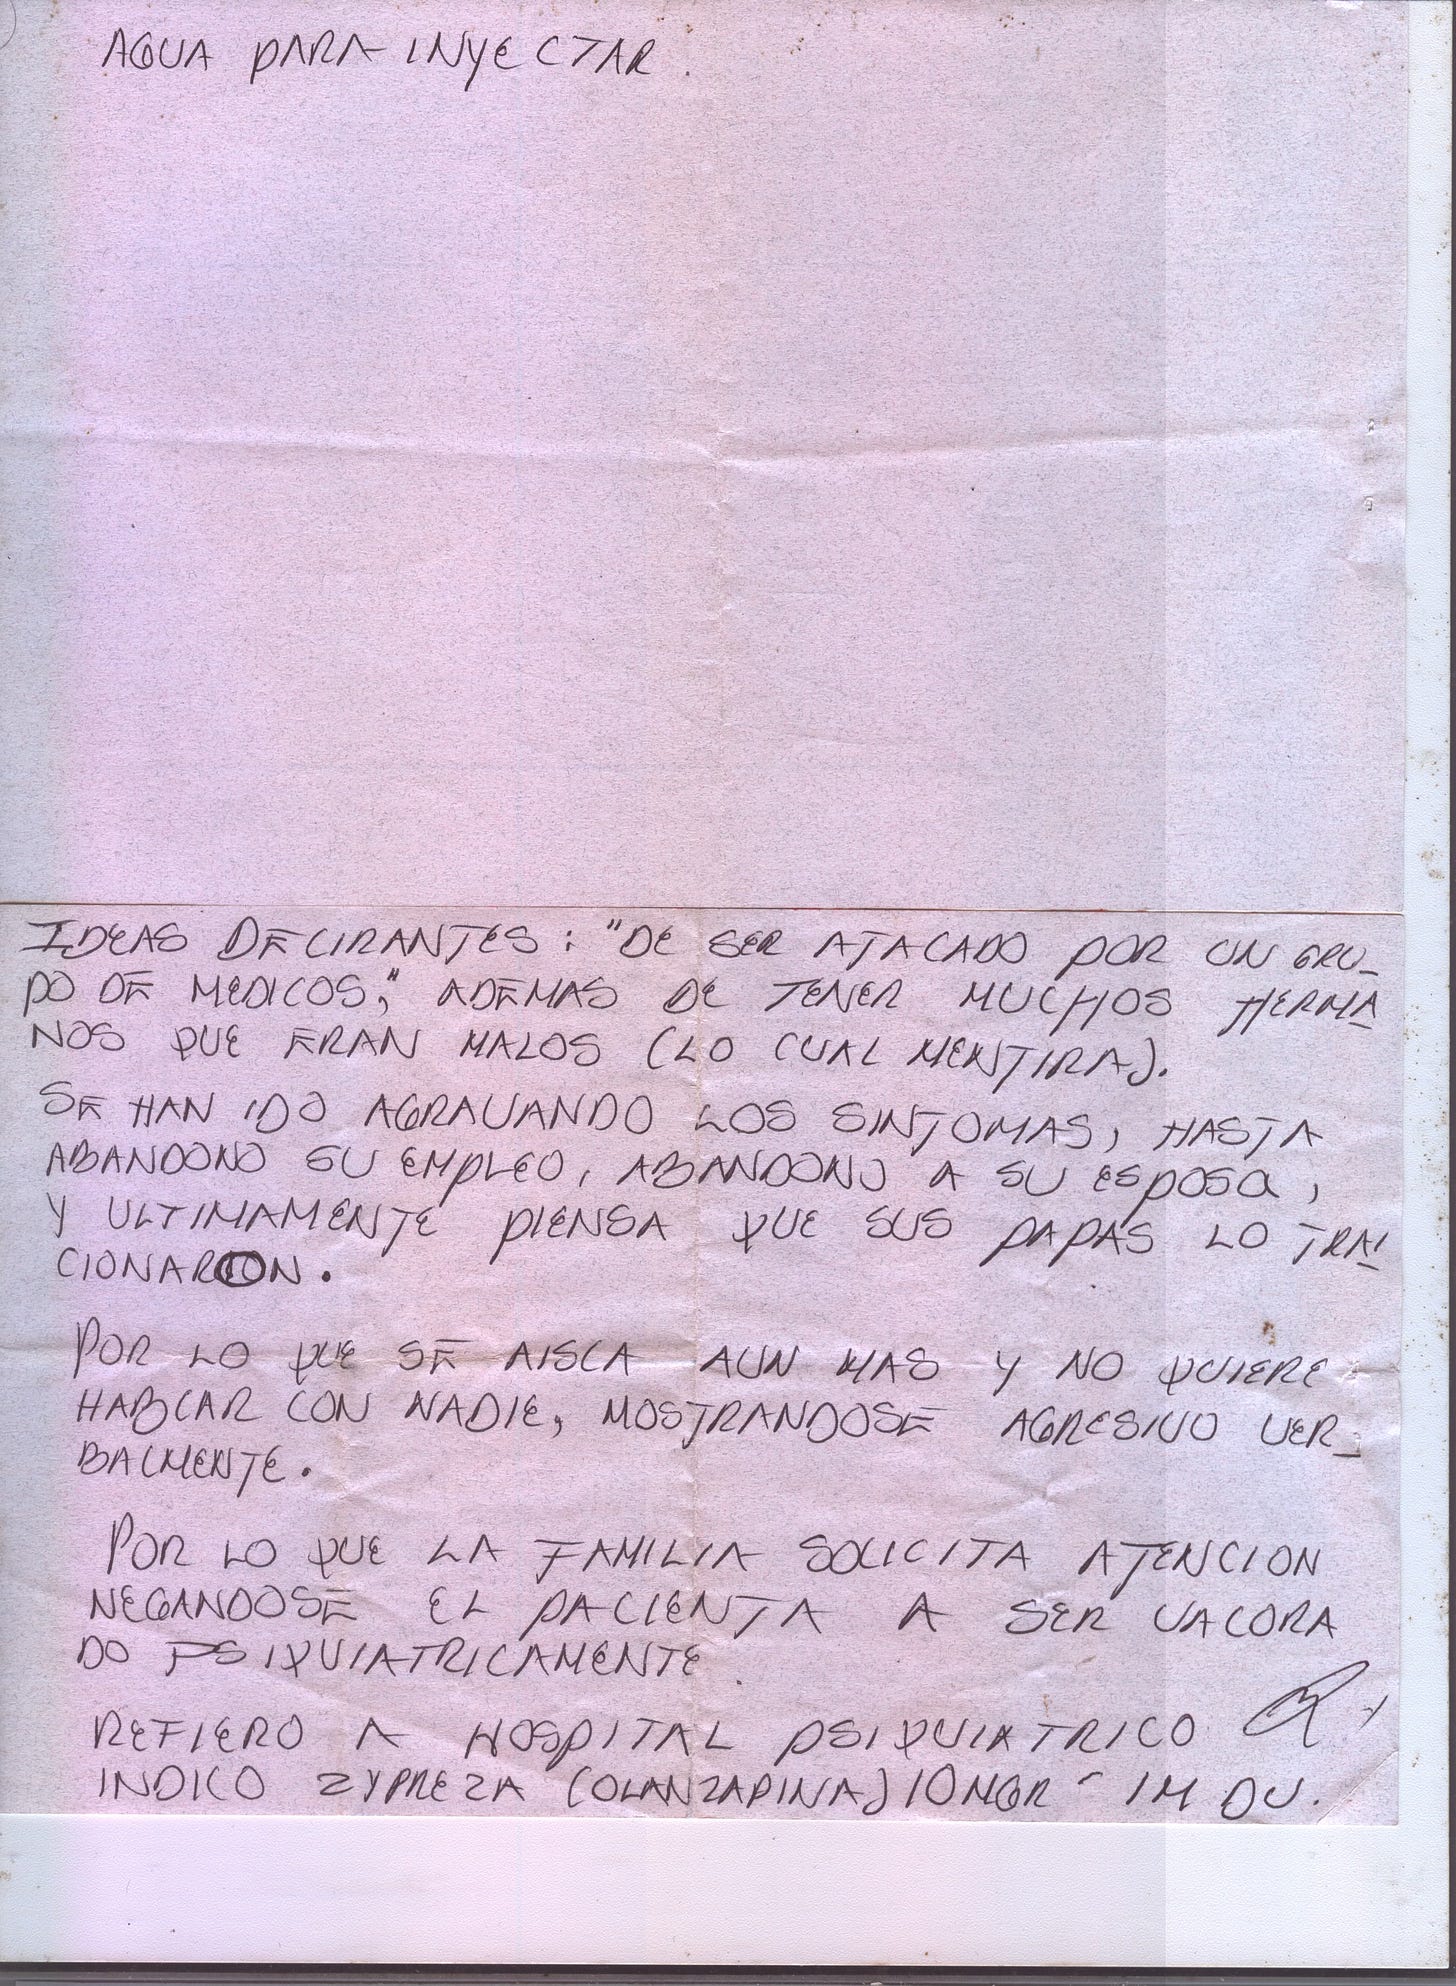 AGUA PARA INYECTAR.
IDEAS DELIRANTES: "DE SER ATACADO POR UN GRU_
PO DE MEDICOS," ADEMAS DE TENER MUCHOS HERMA
NOS QUE ERAN MALOS (LO CUAL MENTIRA).
SE HAN IDO AGRAVANDO LOS SINTOMAS, HASTA
ABANDONO SU EMPLEO, ABANDONO A SU ESPOSA,
Y ULTIMAMENTE PIENSA QUE SUS PAPAS LO TRAI
CIONARON.
POR LO QUE SE AISLA AUN MAS Y NO QUIERE
HABLAR CON NADIE, MOSTRANDOSE AGRESIVO VER_
BALMENTE.
POR LO QUE LA FAMILIA SOLICITA ATENCION
NEGANDOSE EL PACIENTA A SER VALORA
DO PSIQUIATRICAMENTE.
REFIERO A HOSPITAL PSIQUIATRICO
INDICO ZYPREZA (OLANZAPINA) 10MGR - IM DU.